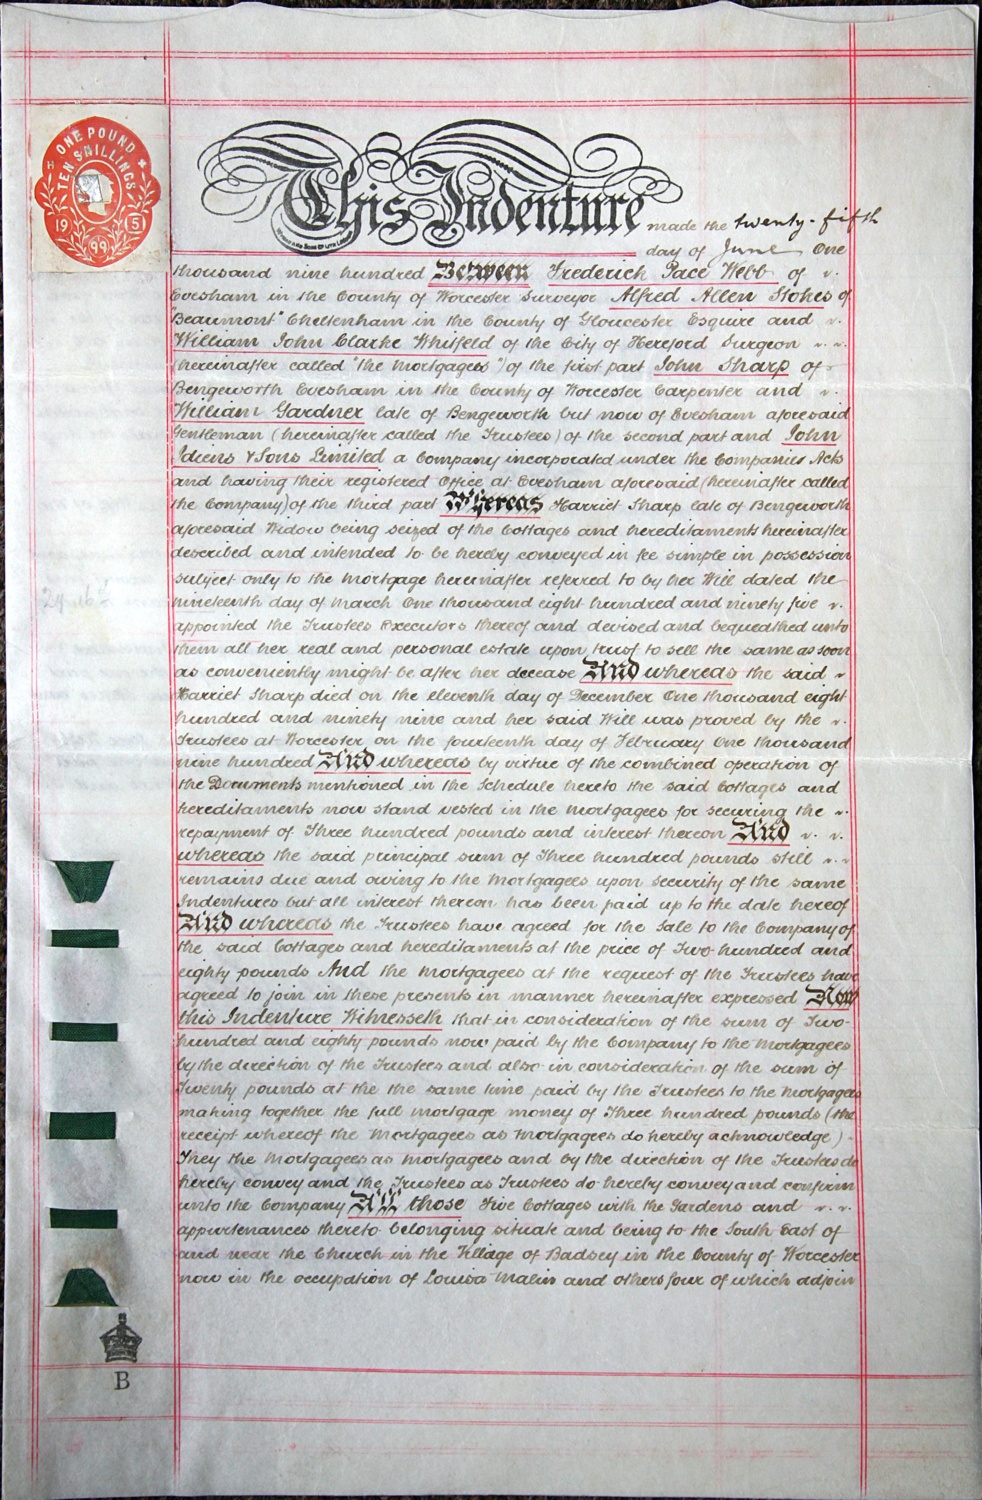 ONE POUND
TEN SHILLINGS
19 5
99
This Indenture made the twenty-fifth
day of June One
thousand nine hundred Between Frederick Pace Webb of
Evesham in the County of Worcester Surveyor Alfred Allen Stokes of
"Beaumont" Cheltenham in the County of Gloucester Esquire and
William John Clarke Whitfeld of the City of Hereford Surgeon
(hereinafter called "the Mortgagees") of the first part John Sharp of
Bengeworth Evesham in the County of Worcester Carpenter and
William Gardner late of Bengeworth but now of Evesham aforesaid
Gentleman (hereinafter called the Trustees) of the second part and John
Idiens & Sons Limited a Company incorporated under the Companies Acts
and having their registered Office at Evesham aforesaid (hereinafter called
the Company) of the third part Whereas Harriet Sharp late of Bengeworth
aforesaid Widow being seized of the Cottages and hereditaments hereinafter
described and intended to be hereby conveyed in fee simple in possession
subject only to the Mortgage hereinafter referred to by her Will dated the
nineteenth day of March One thousand eight hundred and ninety five
appointed the Trustees Executors thereof and devised and bequeathed unto
them all her real and personal estate upon trust to sell the same as soon
as conveniently might be after her decease And whereas the said
Harriet Sharp died on the eleventh day of December One thousand eight
hundred and ninety nine and her said Will was proved by the
Trustees at Worcester on the fourteenth day of February One thousand
nine hundred And whereas by virtue of the combined operation of
the Documents mentioned in the Schedule hereto the said Cottages and
hereditaments now stand vested in the Mortgagees for securing the
repayment of Three hundred pounds and interest thereon And
whereas the said principal sum of Three hundred pounds still
remains due and owing to the Mortgagees upon security of the same
Indentures but all interest thereon has been paid up to the date hereof
And whereas the Trustees have agreed for the Sale to the Company of
the said Cottages and hereditaments at the price of Two hundred and
eighty pounds And the Mortgagees at the request of the Trustees have
agreed to join in these presents in manner hereinafter expressed Now
this Indenture Witnesseth that in consideration of the sum of Two
hundred and eighty pounds now paid by the Company to the Mortgagees
by the direction of the Trustees and also in consideration of the sum of
Twenty pounds at the the same time paid by the Trustees to the Mortgagees
making together the full mortgage money of Three hundred pounds (the
receipt whereof the Mortgagees as Mortgagees do hereby acknowledge)
They the Mortgagees as Mortgagees and by the direction of the Trustees do
hereby convey and the Trustees as Trustees do hereby convey and confirm
unto the Company All those Five Cottages with the Gardens and
appurtenances thereto belonging situate and being to the South East of
and near the Church in the Village of Badsey in the County of Worcester
now in the occupation of Louisa Malin and others four of which adjoin
B